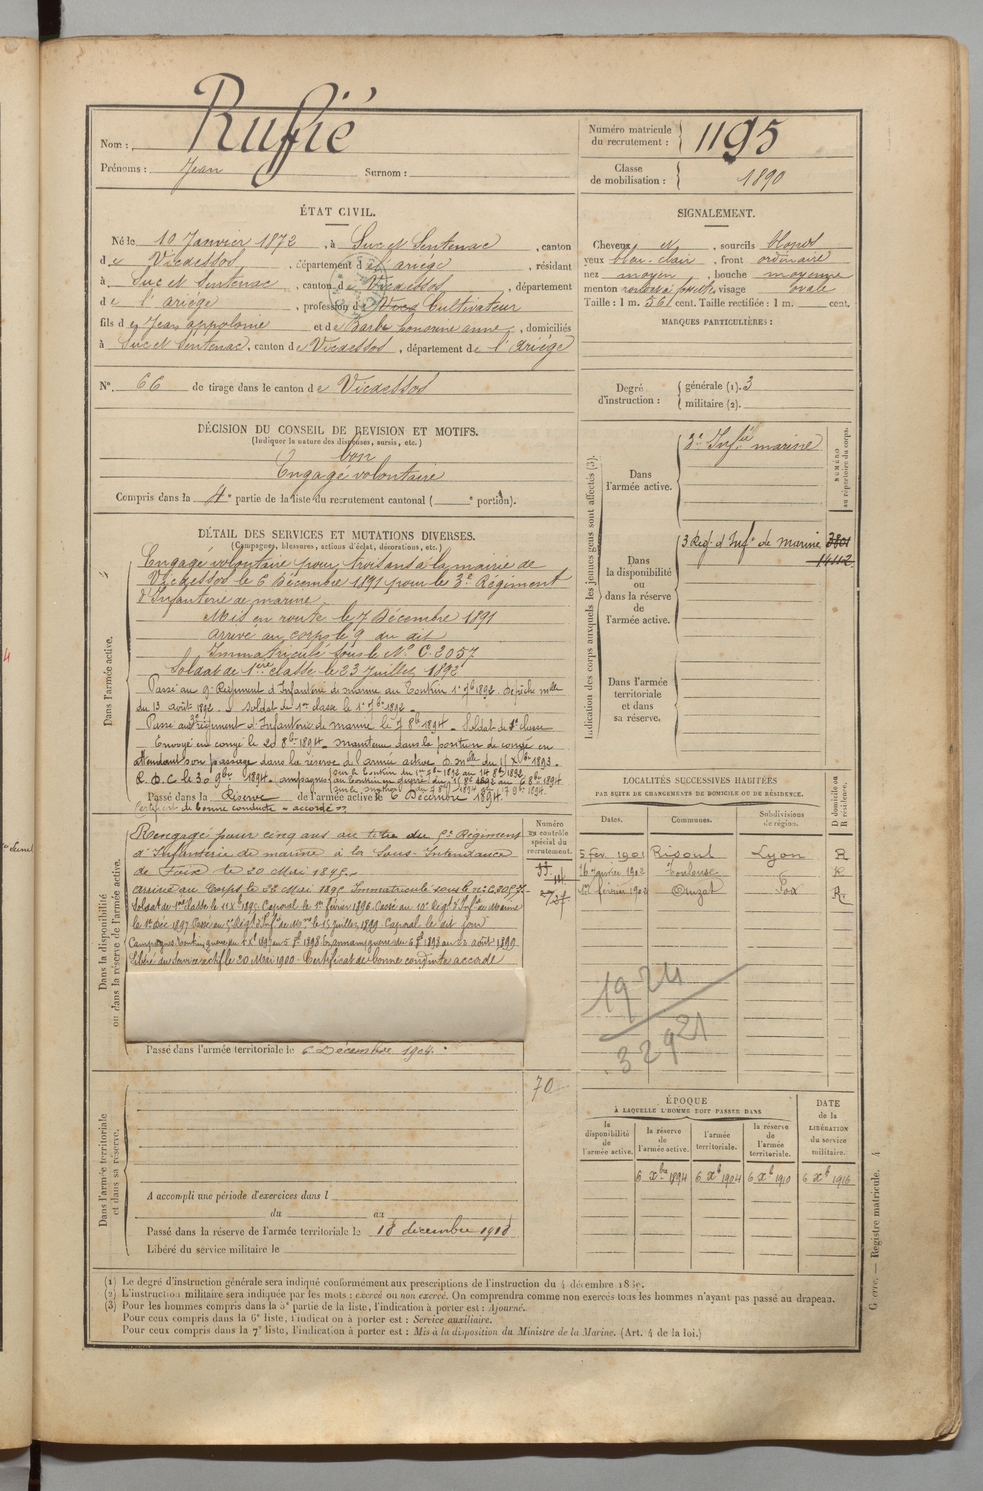 Nom : Rufié
Prénoms : Jean Surnom :
Numéro matricule du recrutement : 1195
Classe de mobilisation : 1890
ÉTAT CIVIL.
Né le 10 Janvier 1872, à Suc et Sentenac, canton
de Vicdessos, département de l'ariége, résidant
à Suc et Sentenac, canton de Vicdessos, département
de l'ariége, profession de Cultivateur
fils de Jean appolonie et de Barbe honorine anne, domiciliés
à Suc et Sentenac, canton de Vicdessos, département de l'ariége
N°. 66 de tirage dans le canton de Vicdessos
SIGNALEMENT.
Cheveux et, sourcils blonds
yeux bleu-clair, front ordinaire
nez moyen, bouche moyenne
menton rond, visage ovale
Taille : 1 m. 561 cent. Taille rectifiée : 1 m. cent.
MARQUES PARTICULIÈRES :
Degré d'instruction : générale (1). 3
militaire (2).
DÉCISION DU CONSEIL DE REVISION ET MOTIFS.
(Indiquer la nature des dispenses, sursis, etc.)
bon
Engagé volontaire
Compris dans la 4e partie de la liste du recrutement cantonal ( e portion).
DÉTAIL DES SERVICES ET MUTATIONS DIVERSES.
(Campagnes, blessures, actions d'éclat, décorations, etc.)
Dans l'armée active.
Engagé volontaire pour trois ans à la mairie de
Vicdessos le 6 Décembre 1891 pour le 3e Régiment
d'Infanterie de marine
Mis en route le 7 Décembre 1891
arrivé au corps le 9 du dit
Immatriculé sous le N° C. 2057
Soldat de 1ère classe le 23 Juillet 1892
Passé au 9e Régiment d'Infanterie de marine au Tonkin 1er 7bre 1892. Dépêche mlle
du 13 août 1892. Soldat de 1re classe le 1er 7bre 1892.
Passé au 3e régiment d'Infanterie de marine le 7 8bre 1894. Soldat de 2e classe
Envoyé en congé le 20 8bre 1894. maintenu dans la position de congé en
attendant son passage dans la réserve de l'armée active D. mlle du 11 Xbre 1893.
R. D. C. le 30 9bre 1894. campagnes
Passé dans la Réserve de l'armée active le 6 Décembre 1894.
Certificat de bonne conduite "accordé".
Indication des corps auxquels les jeunes gens sont affectés (3).
Dans l'armée active. 3e Infie marine
NUMÉRO au répertoire du corps.
Dans la disponibilité ou dans la réserve de l'armée active. 3 Reg. d'Infie de marine 3801
14112
Dans l'armée territoriale et dans sa réserve.
Dans la disponibilité ou dans la réserve de l'armée active.
Numéro au contrôle spécial du recrutement.
Rengagé pour cinq ans au titre du 5e Régiment
d'Infanterie de marine à la Sous-Intendance
de Foix le 20 Mai 1895.
arrivé au Corps le 22 Mai 1895 Immatriculé sous le n° C. 2057.
Soldat de 1re classe le 11 Xbre 1895. Caporal le 1er février 1896. Passé au 10e Régt d'Infie de Marine
le 1er déc 1897. Passé au 5e Régt d'Infie de Mne le 15 juillet 1899. Caporal le dit jour
Libéré du Service actif le 20 Mai 1900. Certificat de bonne conduite accordé
Passé dans l'armée territoriale le 6 Décembre 1904.
70
LOCALITÉS SUCCESSIVES HABITÉES
PAR SUITE DE CHANGEMENTS DE DOMICILE OU DE RÉSIDENCE.
Dates. Communes. Subdivisions de région. D domicile ou R résidence.
5 Fév. 1901 Risoul Lyon R
16 Janvier 1902 Toulouse R
1er février 1903 Auzat Foix R
1924
32921
ÉPOQUE
À LAQUELLE L'HOMME DOIT PASSER DANS
la disponibilité de l'armée active. la réserve de l'armée active. l'armée territoriale. la réserve de l'armée territoriale. DATE de la LIBÉRATION du service militaire.
6 Xbre 1894 6 Xb 1904 6 Xb 1910 6 Xb 1916
Dans l'armée territoriale et dans sa réserve.
A accompli une période d'exercices dans l
du au
Passé dans la réserve de l'armée territoriale le 18 décembre 1910
Libéré du service militaire le
(1) Le degré d'instruction générale sera indiqué conformément aux prescriptions de l'instruction du 4 décembre 1889.
(2) L'instruction militaire sera indiquée par les mots : exercé ou non exercé. On comprendra comme non exercés tous les hommes n'ayant pas passé au drapeau.
(3) Pour les hommes compris dans la 5e partie de la liste, l'indication à porter est : Ajourné.
Pour ceux compris dans la 6e liste, l'indication à porter est : Service auxiliaire.
Pour ceux compris dans la 7e liste, l'indication à porter est : Mis à la disposition du Ministre de la Marine. (Art. 4 de la loi.)
Guerre. — Registre matricule. 4